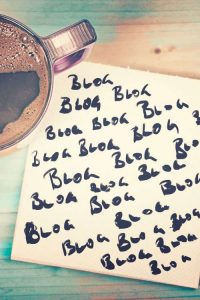 BLOG
BLOG BLOG
BLOG BLOG
BLOG BLOG BLOG
BLOG BLOG BLOG
BLOG BLOG BLOG
BLOG BLOG BLOG
BLOG BLOG BLOG
BLOG BLOG
BLOG BLOG BLOG
BLOG BLOG BLOG
BLOG BLOG